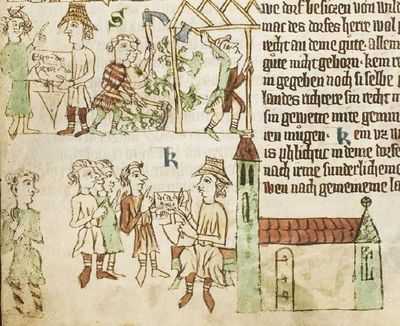 S
Ego de
we dorf besitzen von wild
mac des dorfes herre wol g
recht an deme gute. allein
gute nicht geborn. kein re
in gegeben noch si selbe g
landes richtere sin recht m
sin gewette mite gemin
ren mugen. K ein uzw
is phlichtic in deme dorfe
nach irme sunderlicheme
wen nach gemeineme la
K